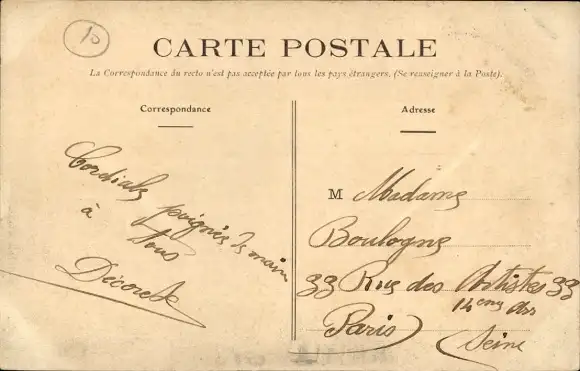 10
CARTE POSTALE
La Correspondance du recto n'est pas acceptée par tous les pays étrangers. (Se renseigner à la Poste).
Correspondance
Cordiale poignée de main
à tous
Décorde
Adresse
M Madame
Boulogne
33 Rue des Artistes 33
14eme Arr
Paris (Seine